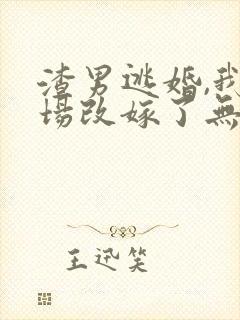 渣男逃婚,我
場改嫁了無
王迅笑